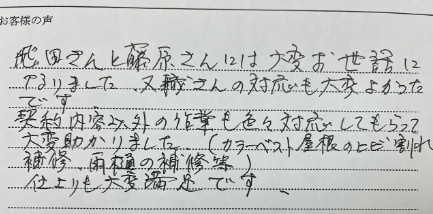 お客様の声
飛田さんと藤原さんには大変お世話に
なりました 又職さんの対応も大変よかった
です
契約内容以外の作業も色々対応してもらって
大変助かりました (カラーベスト屋根のヒビ割れ
補修、雨樋の補修等)
仕上も大変満足です